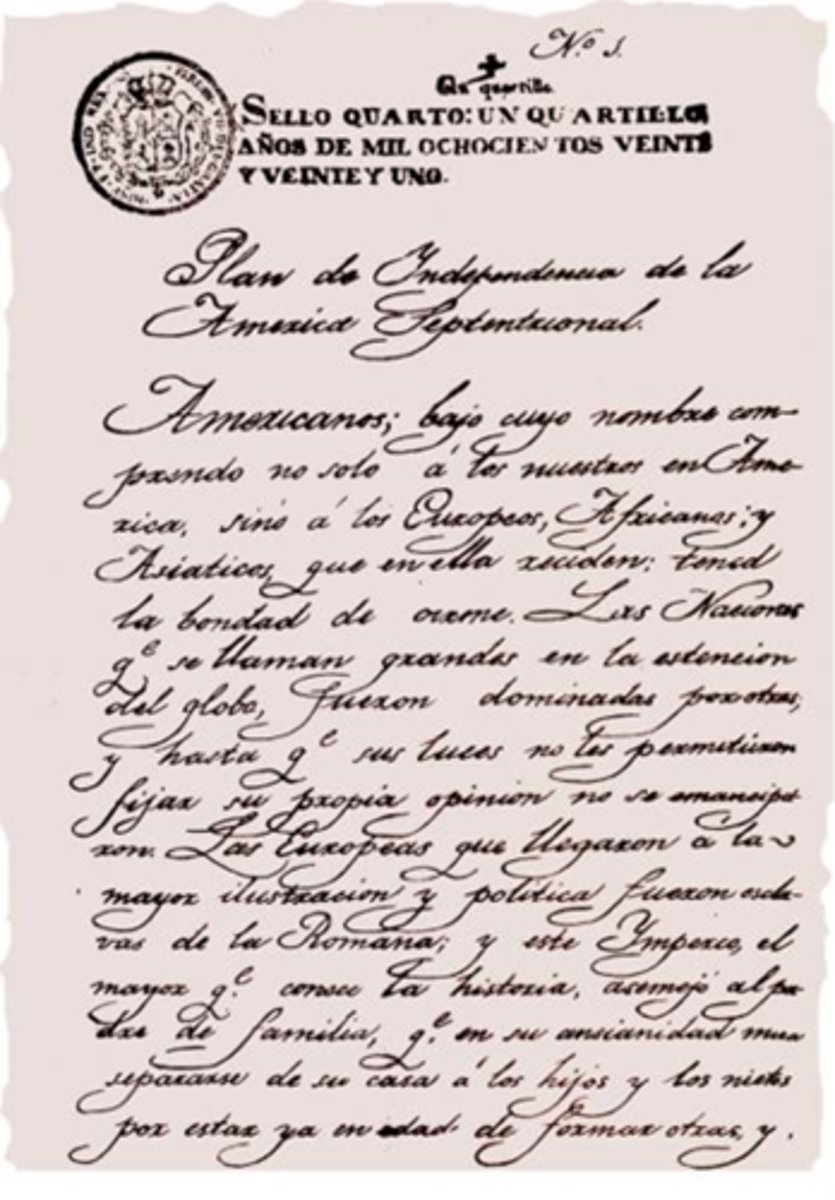 N.º 1.
Un quartillo.
SELLO QUARTO: UN QUARTILLO
AÑOS DE MIL OCHOCIENTOS VEINTE
Y VEINTE Y UNO.
Plan de Independencia de la
America Septentrional.
Americanos; bajo cuyo nombre com-
prendo no solo á los nuestros en Ame-
rica, sinó á los Europeos, Africanos; y
Asiaticos, que en ella reciden: tened
la bondad de oirme. Las Naciones
q.e se llaman grandes en la estencion
del globo, fueron dominadas por otras;
y hasta q.e sus luces no les permitieron
fijar su propia opinion no se emancipa-
ron. Las Europeas que llegaron á la
mayor ilustracion y politica fueron escla-
vas de la Romana; y este Ymperio, el
mayor q.e conoce la historia, asemejó al pa-
dre de familia, q.e en su ansianidad mira
separarse de su casa á los hijos y los nietos
por estar ya en edad de formar otras, y